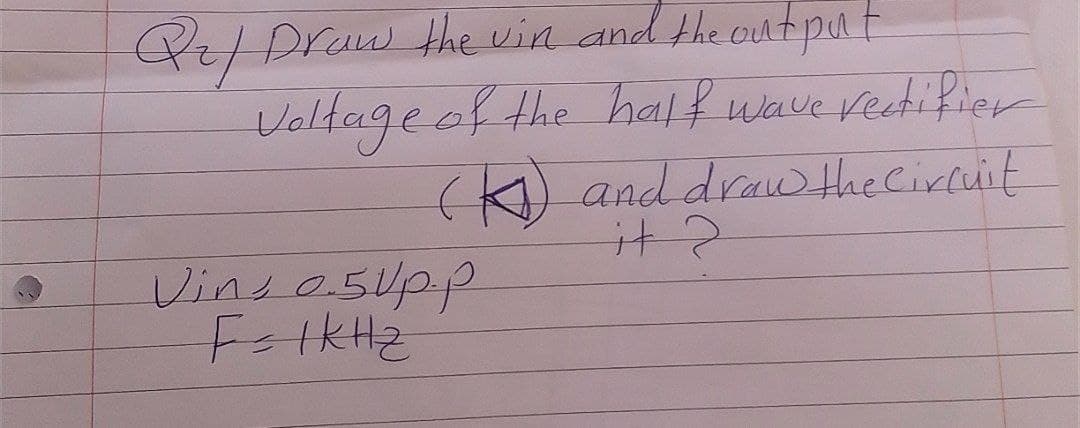 Q2/ Draw the vin and the output
Voltage of the half wave rectifier
( ) and draw the Circuit
it ?
Vin = 0.5Vp.p
F = 1kHz